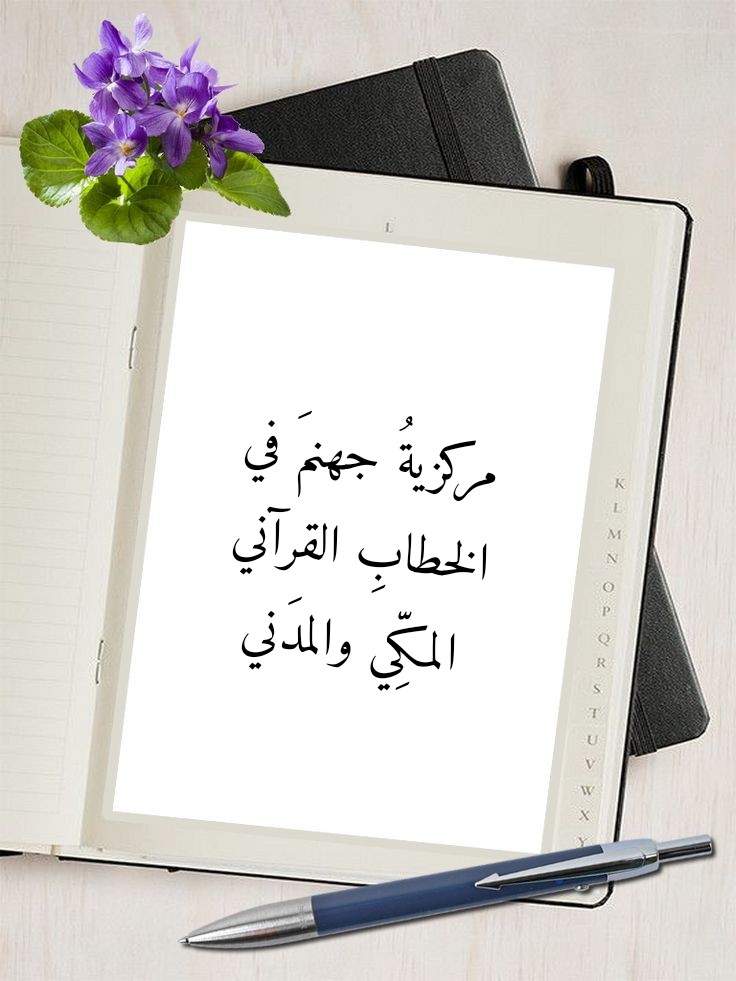 L
مركزيةُ جهنمَ في
الخطابِ القرآني
المكِّي والمدَني
K
L
M
N
O
P
Q
R
S
T
U
V
W
X
Y